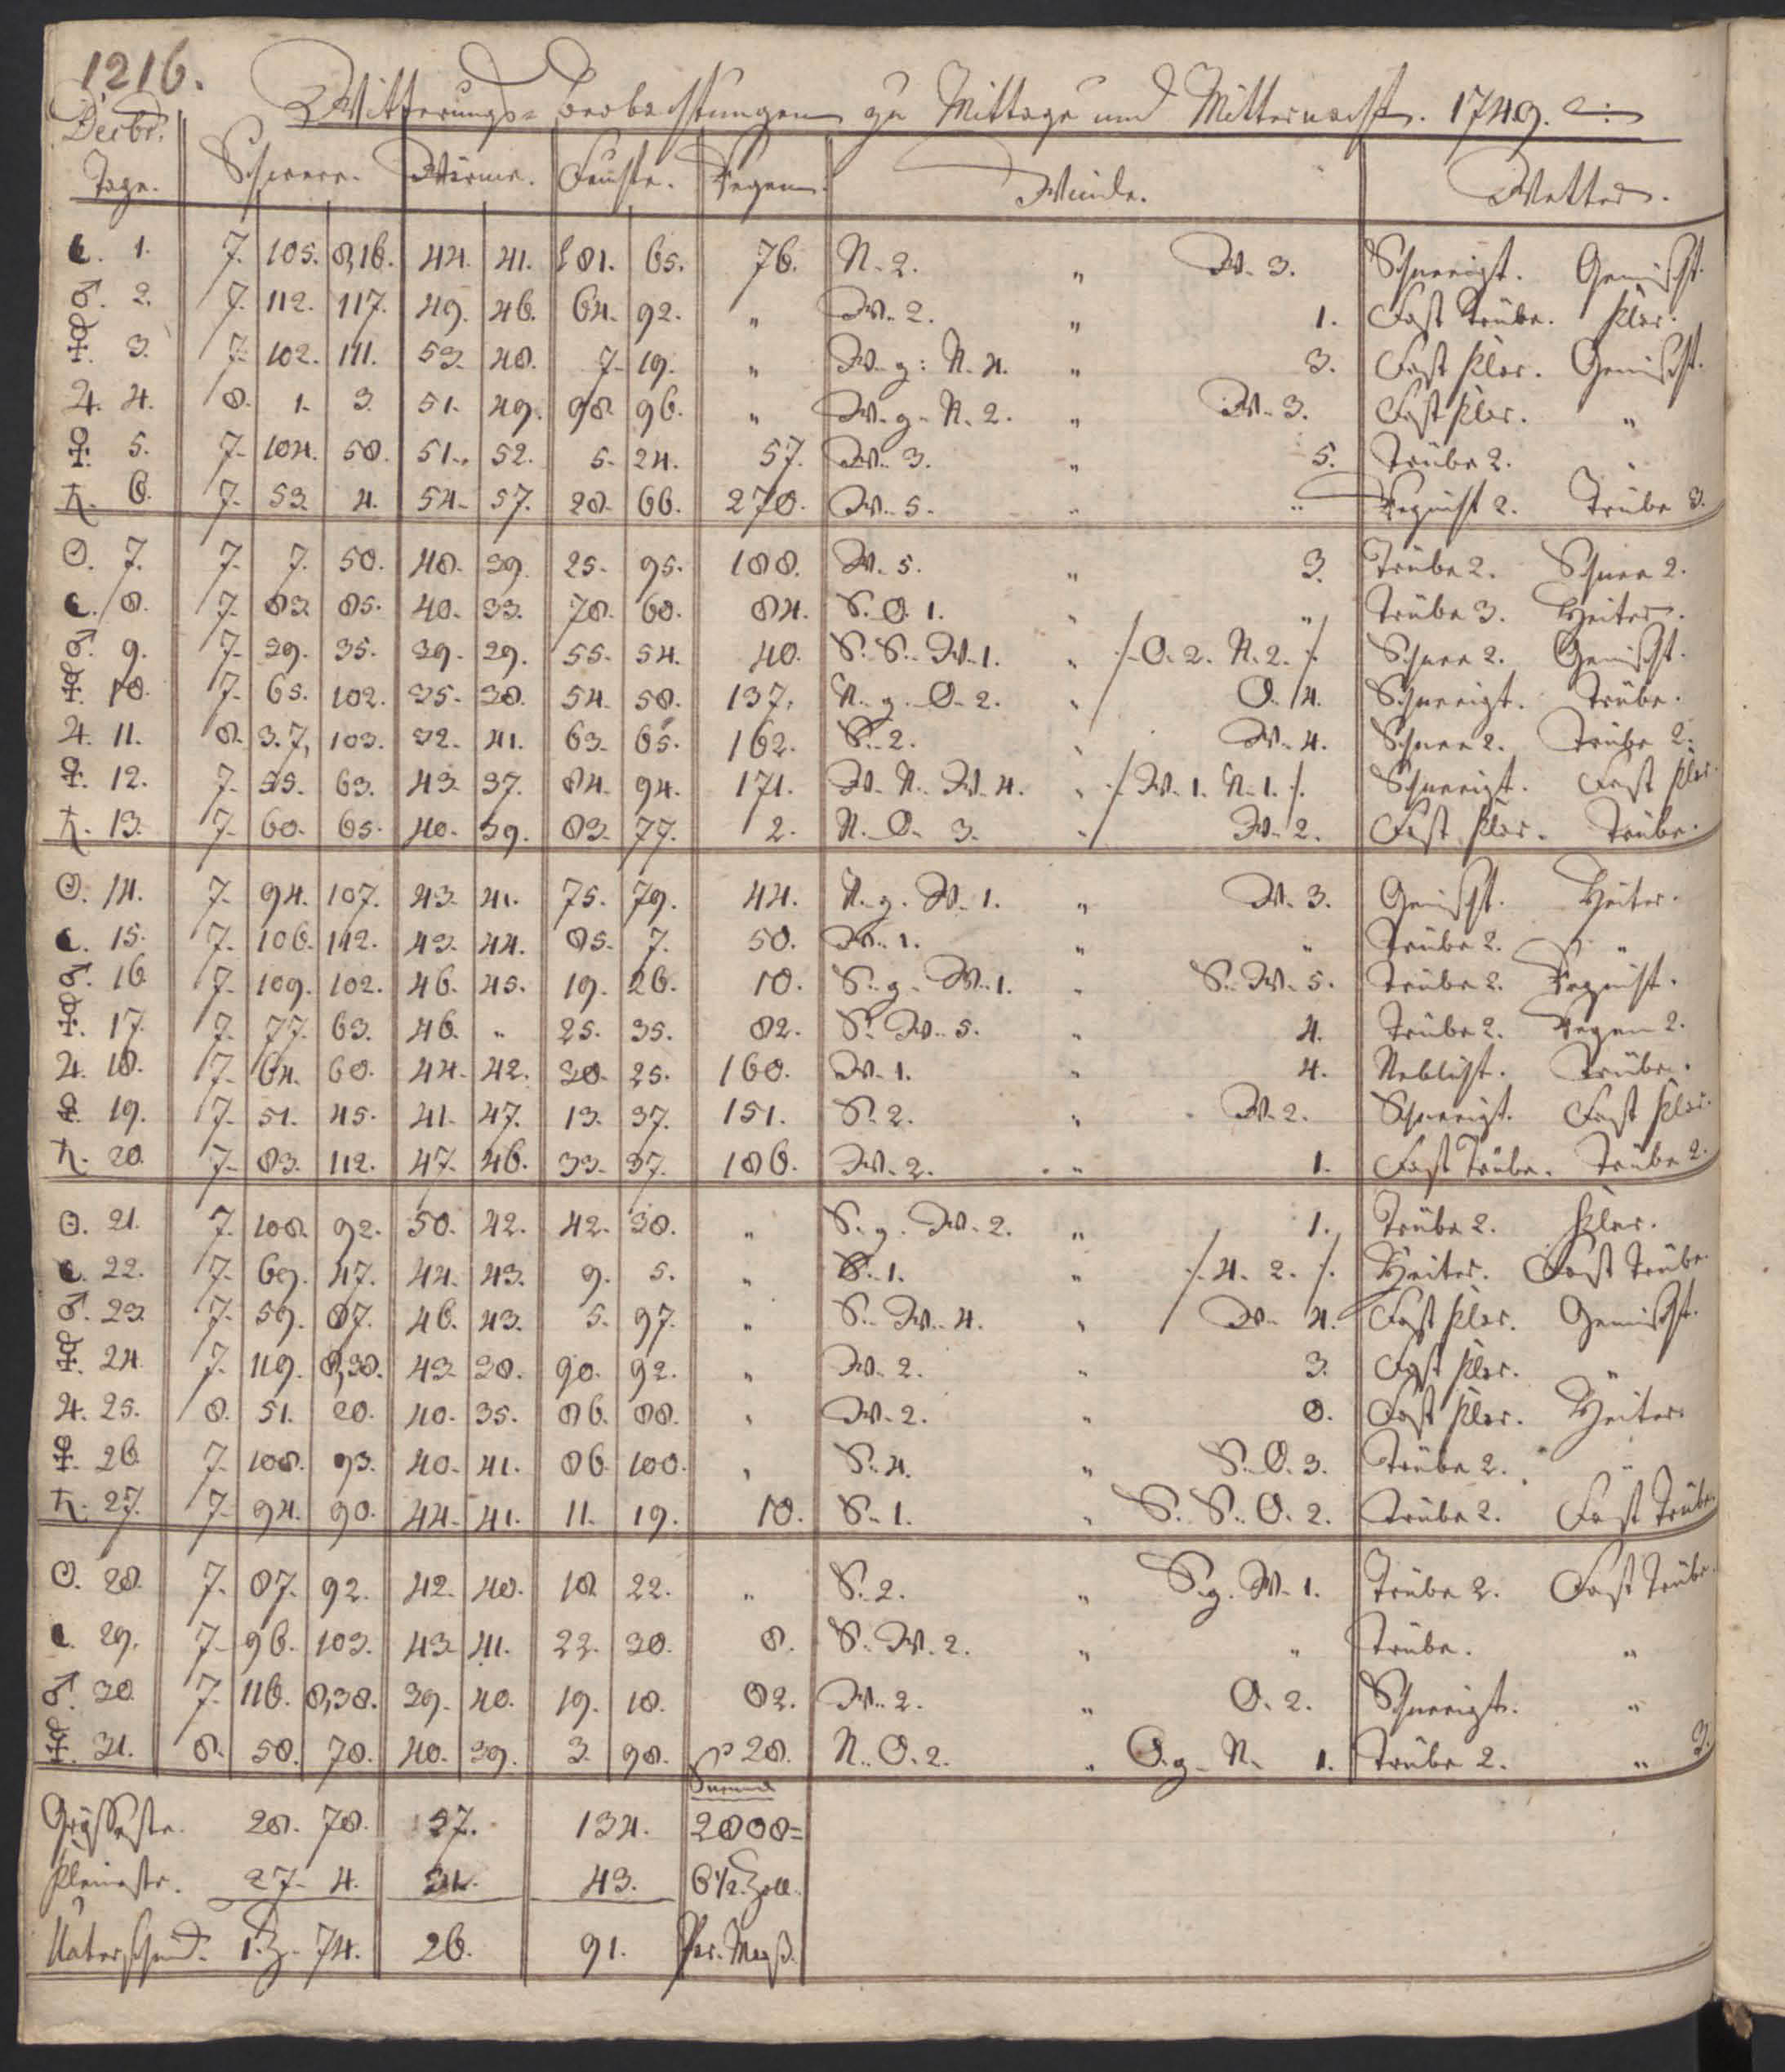 1216.
Witterungs- beobachtungen zu Mittage und Mitternacht. 1749.
Decbr.
Tage. Schwere. Wärme. Feuchte. Regen. Winde. Wetter.
☾. 1. 7. 105. 8,16. 44. 41. 81. 65. 76. N. 2. " W. 3. Schneeigt. Gemischt.
♂. 2. 7. 112. 117. 49. 46. 64. 92. " W. 2. " 1. Fast Trübe. Klar.
☿. 3. 7. 102. 111. 53. 48. 7. 19. " W. g: N. 4. " 3. Fast Klar. Gemischt.
♃. 4. 8. 1. 3. 51. 49. 98. 96. " W. g. N. 2. " W. 3. Fast Klar. "
♀. 5. 7. 104. 58. 51. 52. 5. 24. 57. W. 3. " 5. Trübe 2. "
♄. 6. 7. 53. 4. 54. 57. 28. 66. 270. W. 5. " " Regnicht 2. Trübe 3.
☉. 7. 7. 7. 50. 48. 39. 25. 95. 188. W. 5. " 3. Trübe 2. Schnee 2.
☾. 8. 7. 83. 85. 40. 33. 78. 60. 84. S. O. 1. " " Trübe 3. Heiter.
♂. 9. 7. 39. 35. 39. 29. 55. 54. 40. S. S. W. 1. " /. O. 2. N. 2. /. Schnee 2. Gemischt.
☿. 10. 7. 65. 102. 35. 38. 54. 58. 137. N. g. O. 2. " O. 4. Schneeigt. Trübe.
♃. 11. 8. 3. 7, 103. 32. 41. 63. 65. 162. S. 2. " W. 4. Schnee 2. Trübe 2.
♀. 12. 7. 55. 63. 43. 37. 84. 94. 171. W. N. W. 4. " /. W. 1. N. 1. /. Schneeigt. Fast Klar.
♄. 13. 7. 60. 65. 40. 39. 83. 77. 2. N. O. 3. " W. 2. Fast Klar. Trübe.
☉. 14. 7. 94. 107. 43. 41. 75. 79. 44. N. g. W. 1. " W. 3. Gemischt. Heiter.
☾. 15. 7. 106. 112. 43. 44. 85. 7. 50. W. 1. " " Trübe 2. "
♂. 16. 7. 109. 102. 46. 45. 19. 26. 10. S. g. W. 1. " S. W. 5. Trübe 2. Regnicht.
☿. 17. 7. 77. 63. 46. " 25. 35. 82. S. W. 5. " 4. Trübe 2. Regen 2.
♃. 18. 7. 64. 60. 44. 42. 30. 25. 160. W. 1. " 4. Neblicht. Trübe.
♀. 19. 7. 51. 45. 41. 47. 13. 37. 151. S. 2. " W. 2. Schneeigt. Fast Klar.
♄. 20. 7. 83. 112. 47. 46. 33. 37. 186. W. 2. " 1. Fast Trübe. Trübe 2.
☉. 21. 7. 108. 92. 50. 42. 42. 38. " S. g. W. 2. " 1. Trübe 2. Klar.
☾. 22. 7. 69. 47. 44. 43. 9. 5. " S. 1. " /. 4. 2. /. Heiter. Fast Trübe.
♂. 23. 7. 59. 87. 46. 43. 5. 97. " S. W. 4. " W. 4. Fast Klar. Gemischt.
☿. 24. 7. 119. 8,38. 43. 38. 90. 92. " W. 2. " 3. Fast Klar. "
♃. 25. 8. 51. 20. 40. 35. 86. 88. " W. 2. " 0. Fast Klar. Heiter.
♀. 26. 7. 108. 93. 40. 41. 86. 100. " S. 4. " S. O. 3. Trübe 2. "
♄. 27. 7. 94. 90. 44. 41. 11. 19. 10. S. 1. " S. S. O. 2. Trübe 2. Fast Trübe.
☉. 28. 7. 87. 92. 42. 40. 18. 22. " S. 2. " S. g. W. 1. Trübe 2. Fast Trübe.
☾. 29. 7. 96. 103. 43. 41. 22. 30. 8. S. W. 2. " " Trübe. "
♂. 30. 7. 116. 8,38. 39. 40. 19. 18. 82. W. 2. " O. 2. Schneeigt. "
☿. 31. 8. 58. 78. 40. 39. 3. 98. 28. N. O. 2. " O. g. N. 1. Trübe 2. " 3.
Summa
Grösseste. 28. 78. 57. 134. 2008=
Kleineste. 27. 4. 31. 43. 6 1/2. Zoll.
Unterschied. 1. Z. 74. 26. 91. Par. Maß.